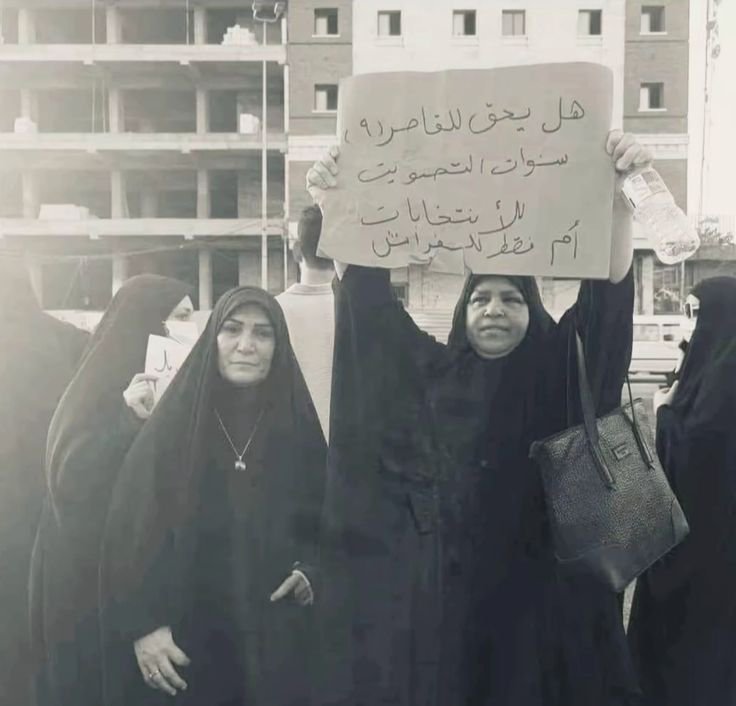 هل يحق للقاصر (٩)
سنوات التصويت
للأنتخابات
أم فقط للفراش